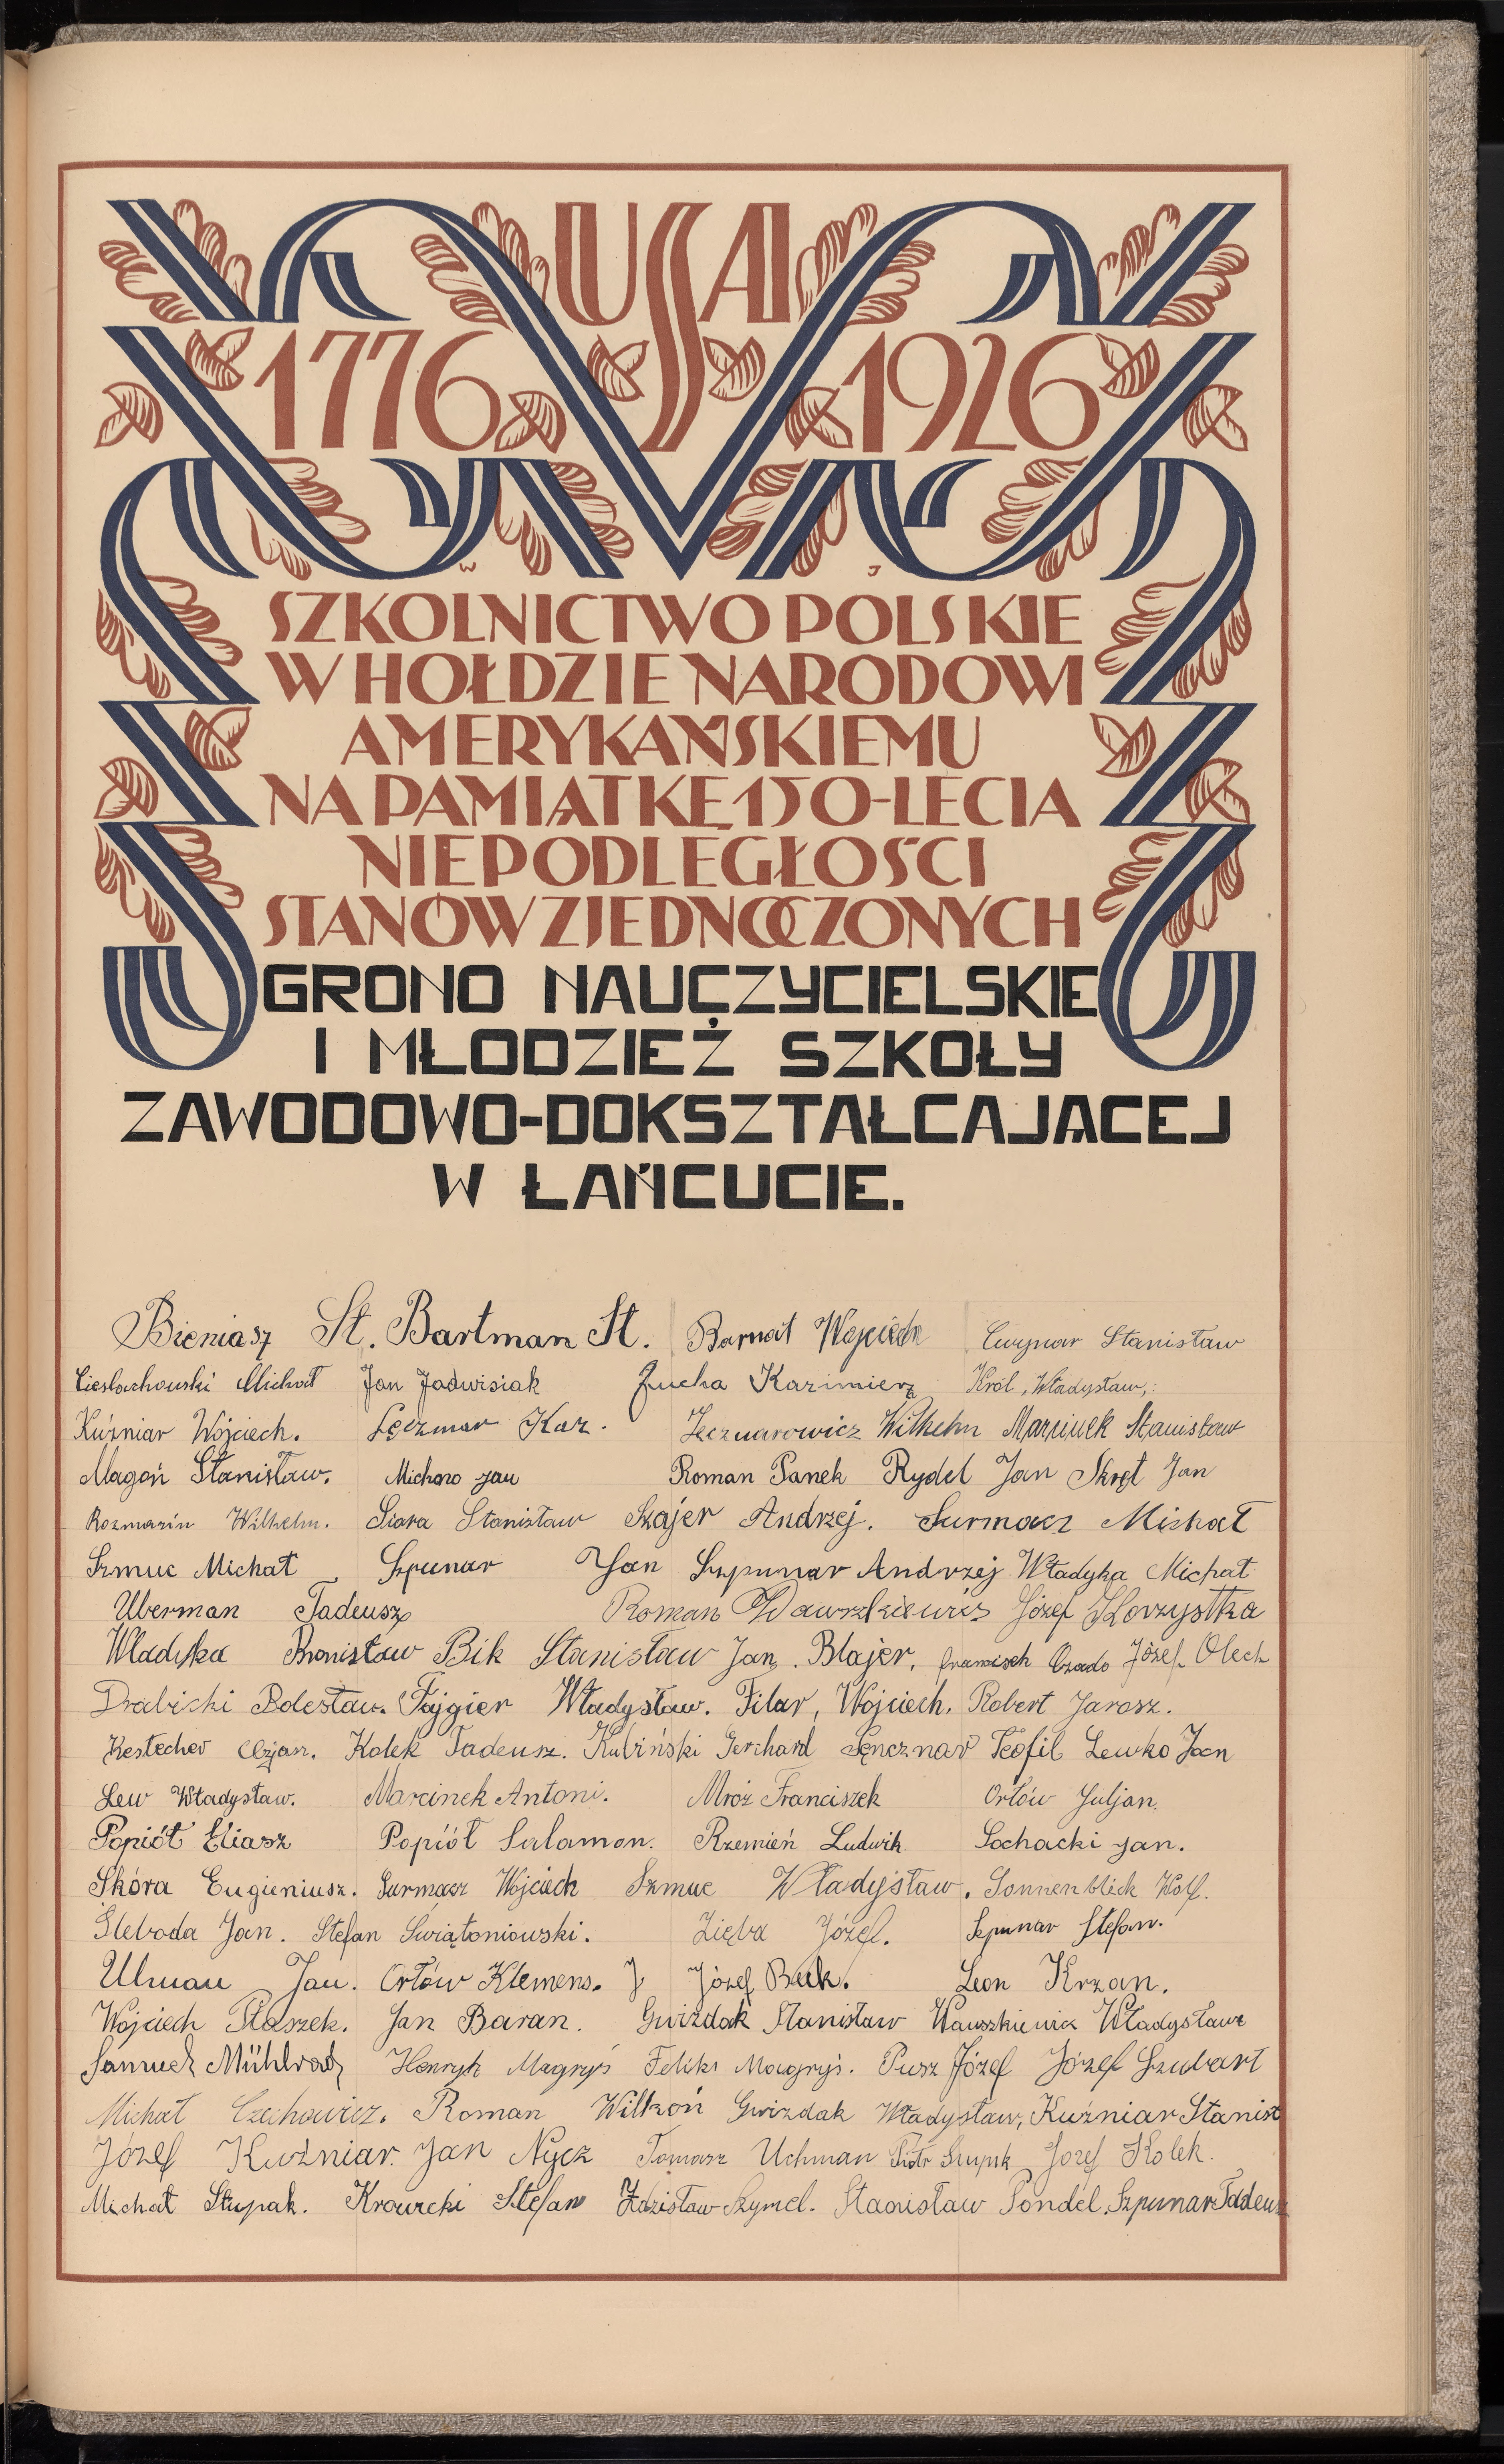 USA
1776 1926
W J
SZKOLNICTWO POLSKIE
W HOŁDZIE NARODOWI
AMERYKAŃSKIEMU
NA PAMIĄTKĘ 150-LECIA
NIEPODLEGŁOŚCI
STANÓW ZJEDNOCZONYCH
GRONO NAUCZYCIELSKIE
I MŁODZIEŻ SZKOŁY
ZAWODOWO-DOKSZTAŁCAJĄCEJ
W ŁAŃCUCIE.
Bieniasz St. Bartman St. Barnat Wojciech Cwynar Stanisław
Cieslachowski Michał Jan Jadwisiak Żucha Kazimierz Król, Władysław,
Kuźniar Wojciech. Łęczmar Kaz. Wilhelm Marciniek Stanisław
Magoń Stanisław. Jan Roman Panek Rydel Jan Skręt Jan
Rozmarin Wilhelm. Siara Stanisław Szajer Andrzej. Surmacz Michał
Szmuc Michał Szpunar Jan Szpunar Andrzej Władyka Michał
Uberman Tadeusz Roman Wawszkiewicz Józef
Władyka Bronisław Bik Stanisław Jan. Blajer. Józef Olech
Drabicki Bolesław. Fajgier Władysław. Filar, Wojciech. Robert Jarosz.
Kestecher Kołek Tadeusz. Kubiński Gerhard Teofil Lewko Jan
Lew Władysław. Marcinek Antoni. Mróz Franciszek Orłów Juljan.
Popiół Eliasz Popiół Salamon. Rzemień Ludwik Sochacki Jan.
Skóra Eugieniusz. Surmacz Wojciech Szmuc Władysław. Sonnenblick Wolf.
Sleboda Jan. Stefan Świątoniowski. Zięba Józef. Szpunar Stefan.
Ulman Jan. Orłów Klemens. J Józef Beck. Leon Krzan.
Wojciech Ptaszek. Jan Baran. Gwizdak Stanisław Wauszkiewicz Władysław
Samuel Mühlrad Henryk Magryś Feliks Magryś. Pusz Józef Józef Szubart
Michał Czechowicz. Roman Wilkoń Gwizdak Władysław, Kuźniar Stanisł
Józef Kuźniar. Jan Nycz Tomasz Uchman Piotr Józef Kołek.
Michał Stupak. Krowicki Stefan Zdzisław Szymel. Stanisław Pondel. Szpunar Tadeusz